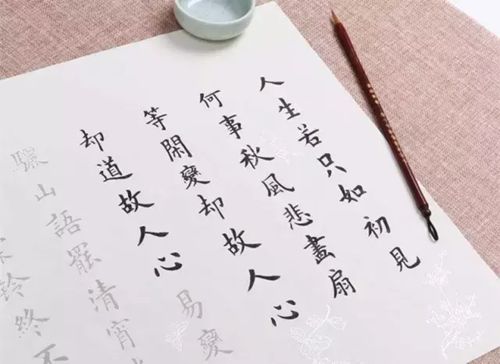 人生若只如初見
何事秋風悲畫扇
等閑變却故人心
却道故人心易變
驪山語罷清宵
鈴終不